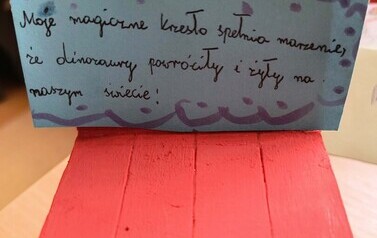 Moje magiczne krzesło spełnia marzenie,
że dinozaury powróciły i żyły na
naszym świecie!